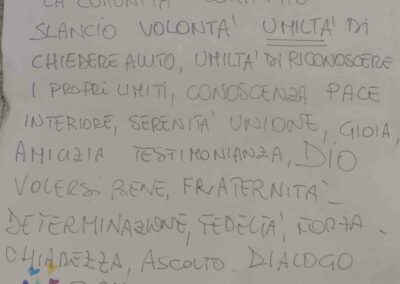 LA COMUNITÀ
SLANCIO VOLONTA' UMILTA' DI
CHIEDERE AIUTO, UMILTA' DI RICONOSCERE
I PROPRI LIMITI, CONOSCENZA PACE
INTERIORE, SERENITA' UNIONE, GIOIA,
AMICIZIA TESTIMONIANZA, DIO
VOLERSI BENE, FRATERNITA'-
DETERMINAZIONE, FEDELTA', FORZA -
CHIAREZZA, ASCOLTO. DIALOGO